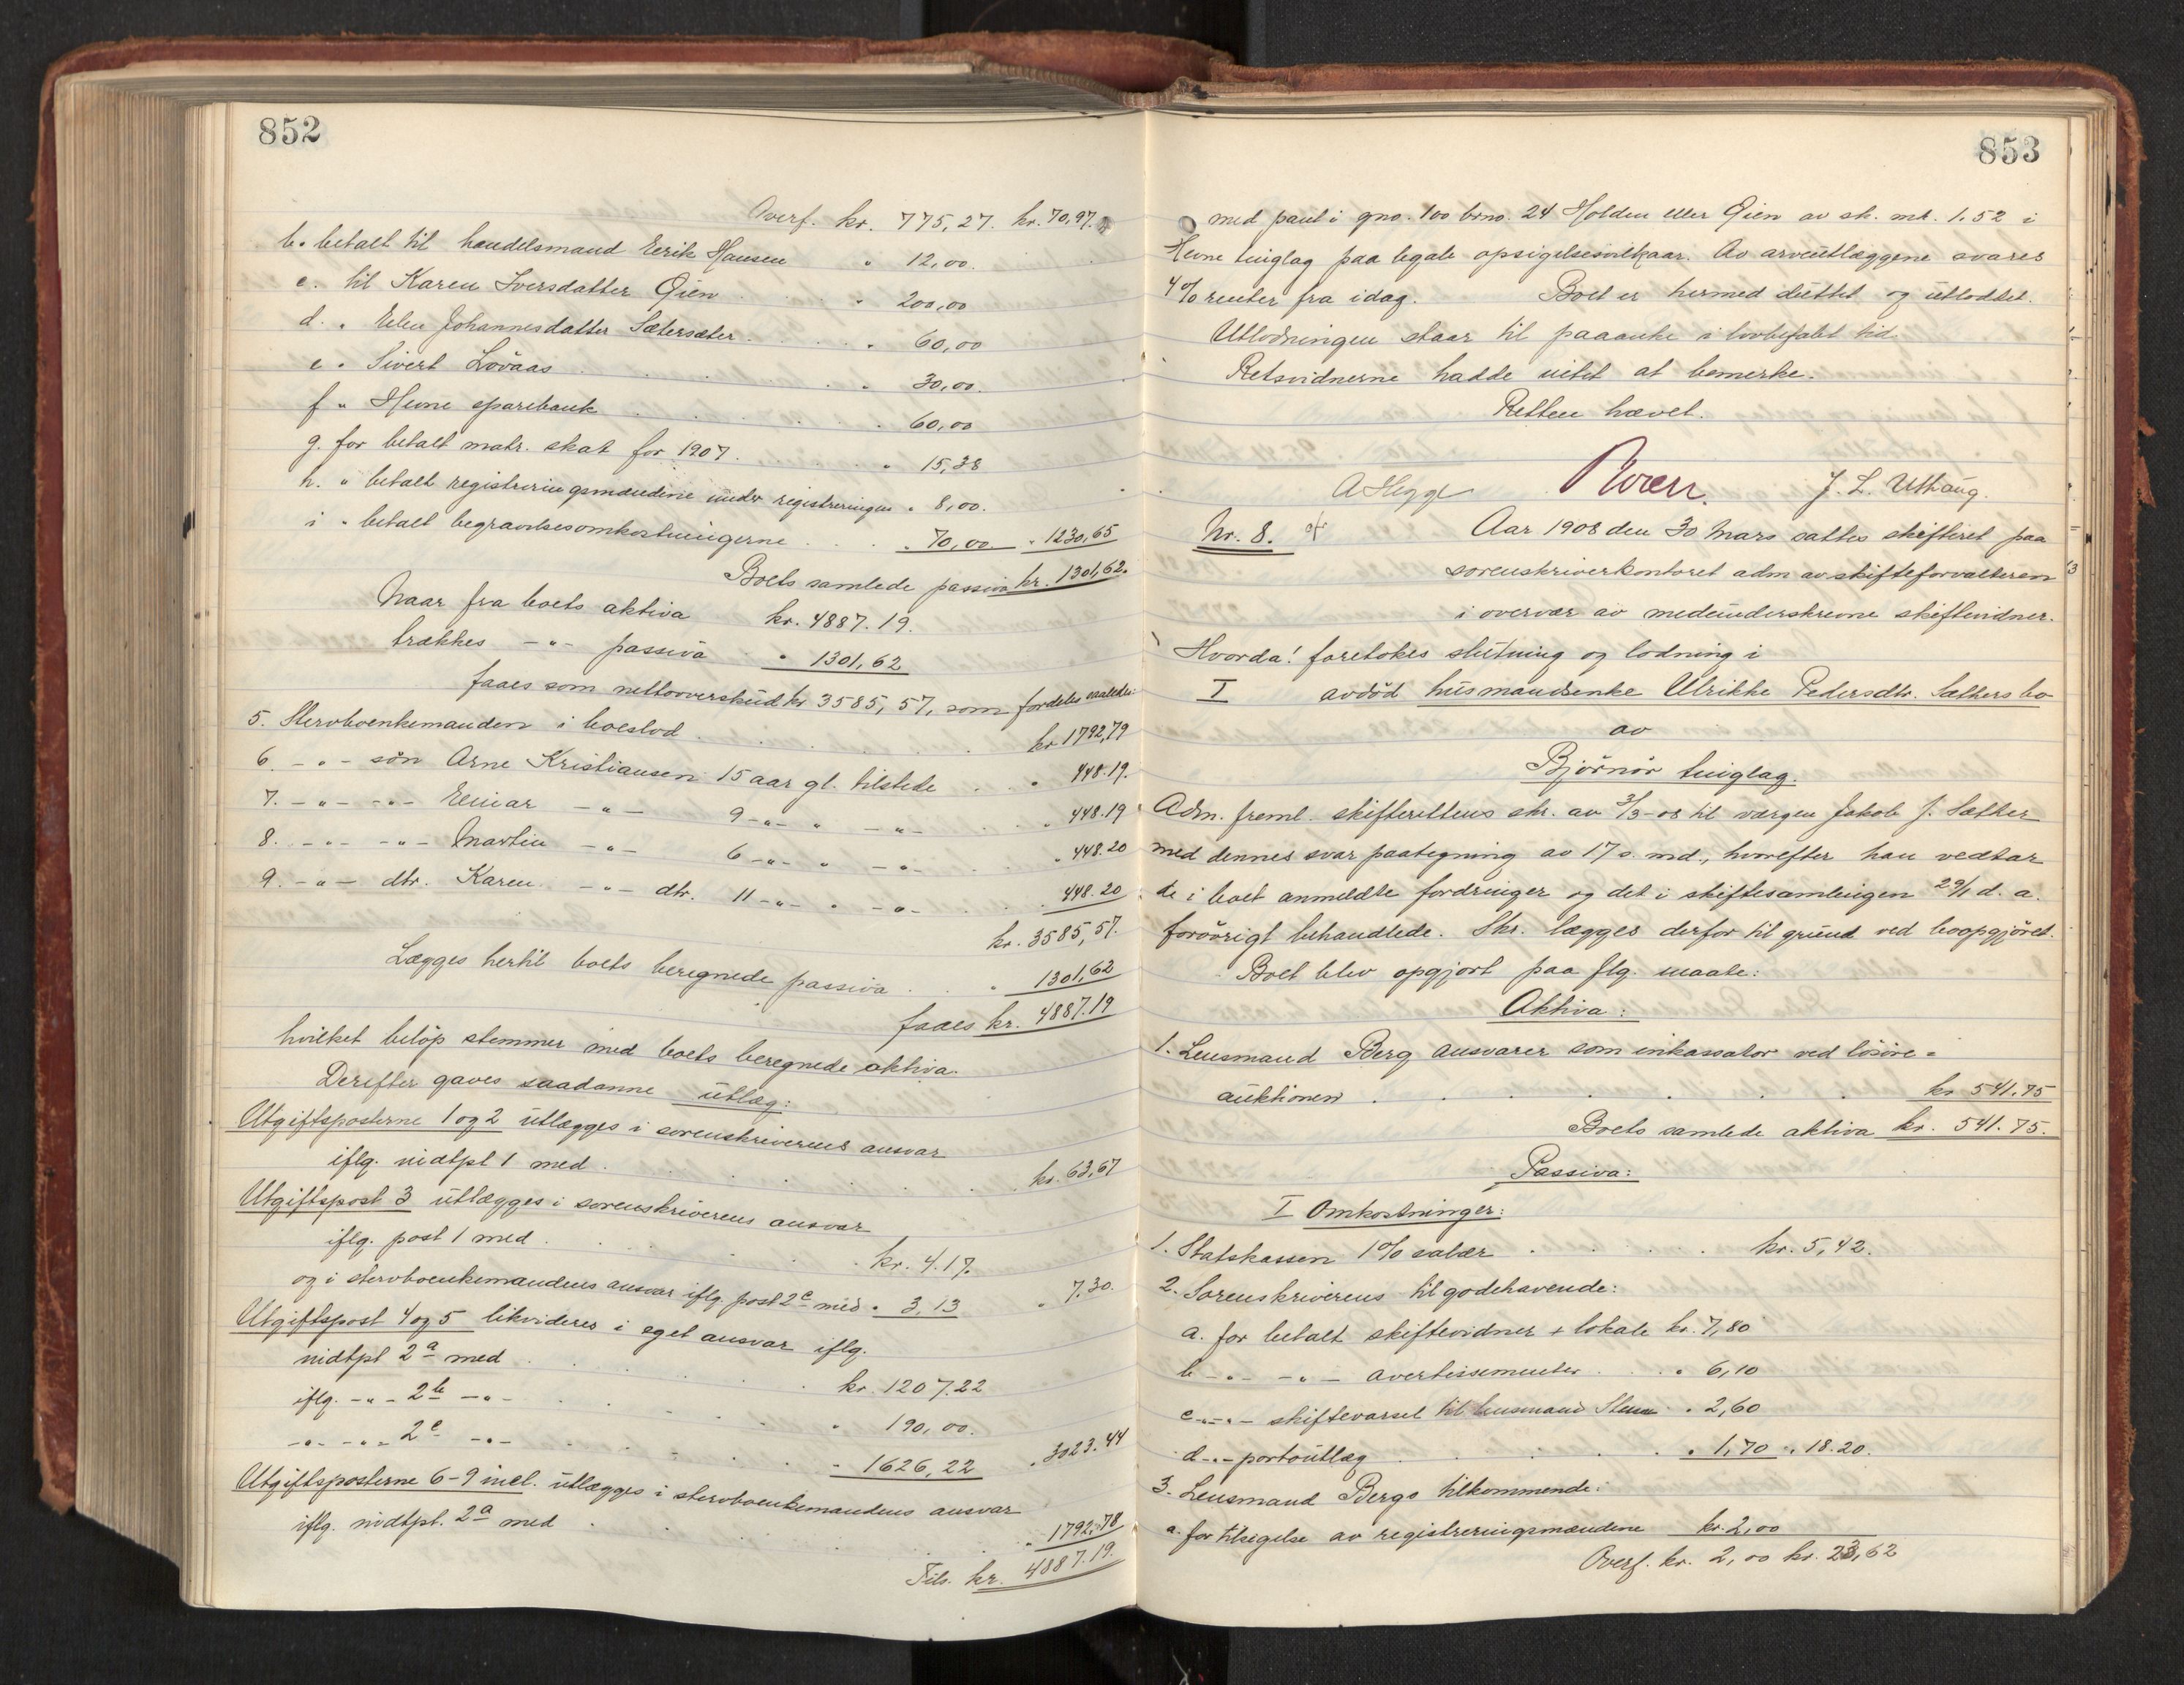 852
Overf. kr. 775,27. kr. 70,97.
b. betalt til handelsmand Eerik Hansen " 12,00.
c. til Karen Iversdatter Øien . . . . " 200,00
d. " Elen Johannesdatter Sætersæter . . . . " 60,00
e. " Sivert Lovaas . . . . " 30,00.
f " Hevne sparebank . . . . " 60,00
g. for betalt matr. skat for 1907 . . . . " 15,38
h. " betalt registreringsmændene under registreringen " 8,00.
i " betalt begravelsesomkostningerne . . . " 70,00. " 1230,65
Boets samlede passiva kr. 1301,62.
Naar fra boets aktiva kr. 4887.19.
trækkes -"- passiva " 1301,62
faaes som nettooverskud kr 3585,57, som fordeles saaledes:
5. Stervboenkemanden i boeslod . . . . kr 1792,79
6. -"- søn Arne Kristiansen 15 aar gl. tilstede . . . " 448.19.
7. -"- -"- Einar -"- 9 -"- " -"- . . . " 448.19
8. -"- -"- Martin -"- 6 -"- " -"- . . . " 448.20
9. -"- dtr. Karen -"- dtr. 11 -"- " -"- . . . " 448.20
kr. 3585,57.
Lægges hertil boets beregnede passiva . . " 1301,62
faaes kr. 4887.19
hvilket beløp stemmer med boets beregnede aktiva.
Derefter gaves saadanne utlæg:
Utgiftsposterne 1 og 2 utlægges i sorenskriverens ansvar
iflg. indtpt 1 med . . . . kr. 63,67
Utgiftspost 3 utlægges i sorenskriverens ansvar
iflg. post 1 med . . . . kr. 4.17.
og i stervboenkemandens ansvar iflg. post 2c med " 3,13 " 7,30.
Utgiftspost 4 og 5 likvideres i eget ansvar iflg.
indtpt 2a med . . . . kr. 1207.22
iflg. -"- 2b -"- . . . . " 190,00.
-"- -"- 2c -"- . . . . " 1626,22 " 3023.44
Utgiftsposterne 6-9 incl. utlægges i stervboenkemandens ansvar
iflg. indtpt. 2a med . . . . " 1792.78
Tils. kr. 4887.19.
853
med pant i gno. 100 brno. 24 Holden eller Øien av sk. mk. 1.52 i
Hevne tinglag paa legale opsigelsesvilkaar. Av arveutlæggene svares
4% renter fra idag. Boet er hermed sluttet og utloddet.
Utlodningen staar til paaanke i lovbefalet tid.
Retsvidnerne hadde intet at bemerke.
Retten hævet.
A Hegge J. L. Uthaug.
Nr. 8. Aar 1908 den 30 Mars sattes skifteret paa
sorenskriverkontoret adm av skifteforvalteren
i overvær av medunderskrevne skiftevidner.
Hvorda! foretokes slutning og lodning i
I avdød husmandsenke Ulrikke Pedersdtr. Sæthers bo
av
Bjørnør tinglag.
Adm. freml. skifterettens skr. av 3/3-08 til værgen Jakob J. Sæther
med dennes svar paategning av 17 s. md., hvorefter han vedtar
de i boet anmeldte fordringer og det i skiftesamlingen 29/1 d. a.
forøvrigt behandlede. Skr. lægges derfor til grund ved boopgjøret.
Boet blev opgjort paa flg. maate:
Aktiva:
1. Lensmand Berg ansvarer som inkassator ved løsøre=
auktionen . . . . kr 541.75
Boets samlede aktiva kr. 541.75.
Passiva:
I Omkostninger:
1. Statskassen 1% salær . . . . kr. 5,42.
2. Sorenskriverens tilgodehavende:
a. for betalt skiftevidner + lokale kr. 7,80
b -"- -"- avertissementer . . " 6,10
c -"- -"- skiftevarsel til lensmand " 2,60
d -"- portoutlæg . . . . " 1,70 " 18.20.
3. Lensmand Bergs tilkommende:
a. for tilsigelse av registreringsmændene kr. 2,00
Overf. kr. 2,00 kr. 23,62